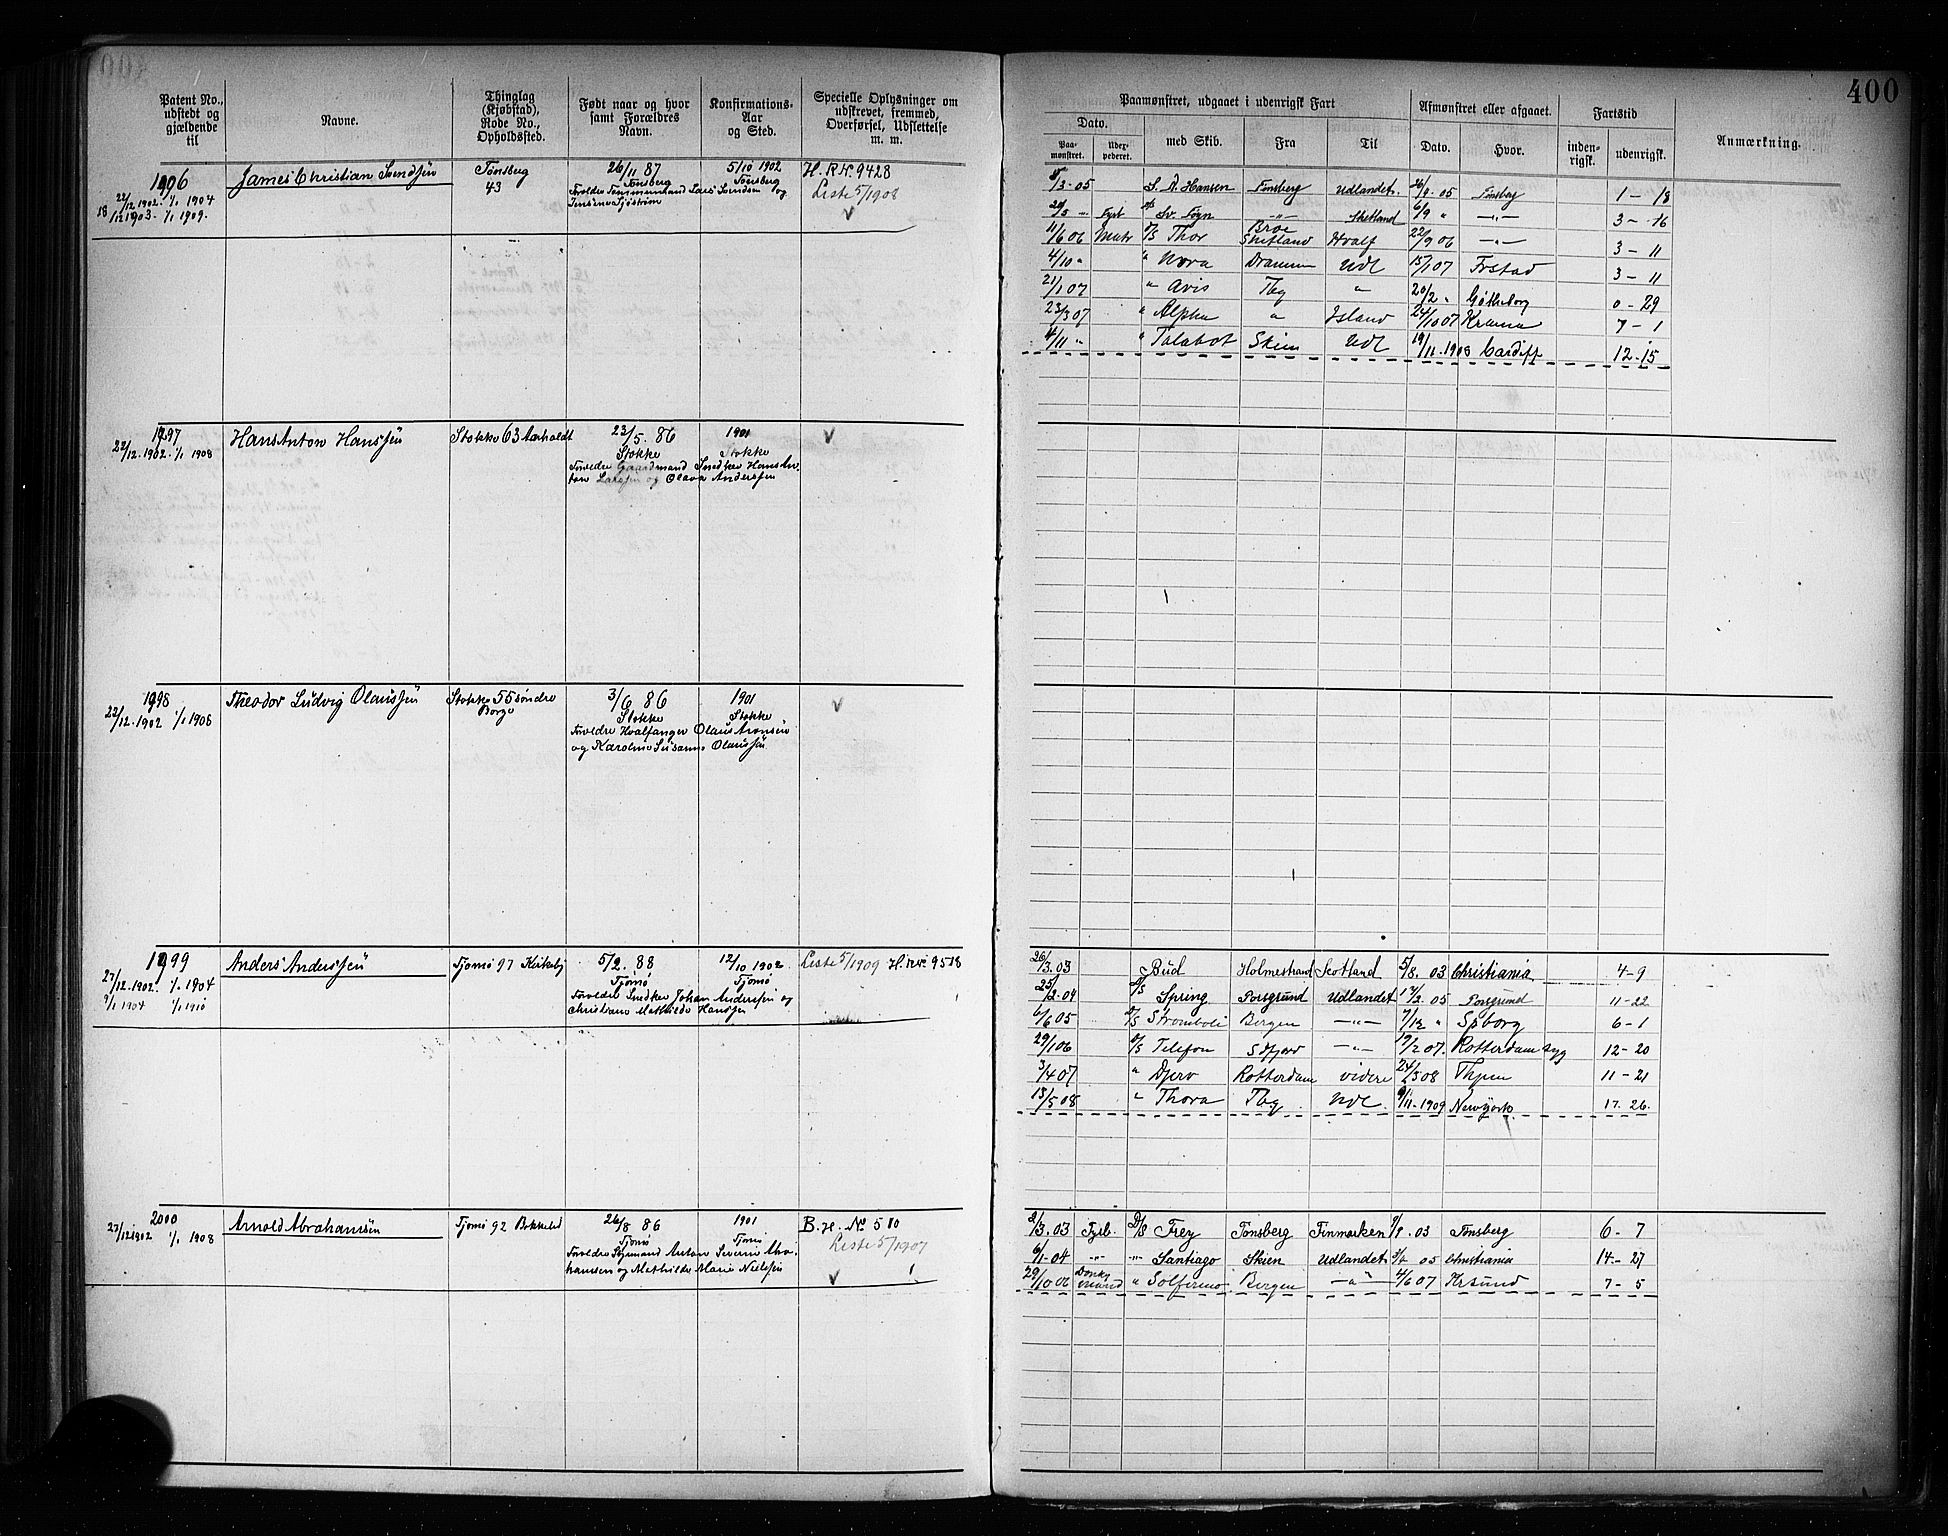 400
Patent No., udstedt og gjældende til
Navne.
Thinglag (Kjøbstad), Rode No., Opholdssted.
Født naar og hvor samt Forældres Navn.
Konfirmations-Aar og Sted.
Specielle Oplysninger om udskrevet, fremmed, Overførsel, Udslettelse m. m.
Paamønstret, udgaaet i udenrigsk Fart
Afmønstret eller afgaaet.
Fartstid
Anmærkning.
Dato.
Paa-mønstret.
Uder-pederet.
med Skib.
Fra
Til
Dato.
Hvor.
inden-rigsk.
udenrigsk.
James Christian Svendsen
Tønsberg
43
26/11 87
Tønsberg
5/10 1902
Tønsberg
H. R. No. 9428
Liste 5/1908
22/12 1902. 1/1 1904
18/12 1903. 1/1 1909.
/3-05 S. A. Hansen Tønsberg Udlandet. 26/9 05 Tønsberg 1-18
Sv. Foyn Shetland 6/9 " 3-16
11/6 06 Matr Thor Shetland Hvalf 22/9 06 3-11
4/10 " " Nora Drammen Udl 15/1 07 Frstad 3-11
21/1 07 " Avis Tbg " 20/2 " Gøtheborg 0-29
23/3 07 " Alpha " Island 24/10 07 7-1
4/11 " " Talabot Skien Udl 19/11-1908 Cardiff 12-15
1997
22/12.1902. 1/1 1908
Hans Anton Hanssen
Stokke 63 Aarholdt
23/5. 86
Stokke
1901
Stokke
Forældre Gaardmand Snedker Hans An-
ton Larssen og Olava Anderssen
1998
22/12.1902 1/1 1908
Theodor Ludvig Olaussen
Stokke 55 søndre
Borge
3/6 86
Stokke
1901
Stokke
Forældre Hvalfanger Olaus Aronsen
og Karoline Susanne Olaussen
1999
27/12.1902. 1/1 1904
1/1 1904 1/1 1910
Anders Anderssen
Tjømø 97 Kirkeby
5/2. 88
Tjømø
12/10 1902
Tjømø
Liste 5/1909 H. R. No. 9518
Forældre Snedker Johan Anderssen og
Christiane Mathilde Hanssen
26/3.03 Bud Holmestrand Scotland 5/8. 03 Christiania 4-9
25/2.04 D/S Spring Porsgrund Udlandet 17/2 05 Porsgrund 11-22
6/6 05 D/S Stromboli Bergen -"- 7/12 " Spborg 6-1
29/1 06 D/S Telefon Sdfjord -"- 19/2 07. Rotterdam syg 12-20
3/4 07 " Djerv Rotterdam videre 24/3 08 11-21
13/5 08 " Thora Tbg. Udl. 9/11-1909 Newyork. 17.26.
2000
27/12 1902 1/1 1908
Arnold Abrahamsen
Tjømø 92 Bekkelid
26/8 86
Tjømø
1901
Tjømø
B. H. No 510
Liste 5/1907
Forældre Sømand Anton Severin Abra-
hamsen og Mathilde Marie Nielsen
2/3. 03 Fyrb. D/S Frey Tønsberg Finmarken 9/8. 03 Tønsberg 6-7
6/1-04 -"- -"- Santiago Skien Udlandet 05 Christiania 14-27
29/10 06 Donkymand " Solferino Bergen -"- 4/6 07 Krsund 7-5